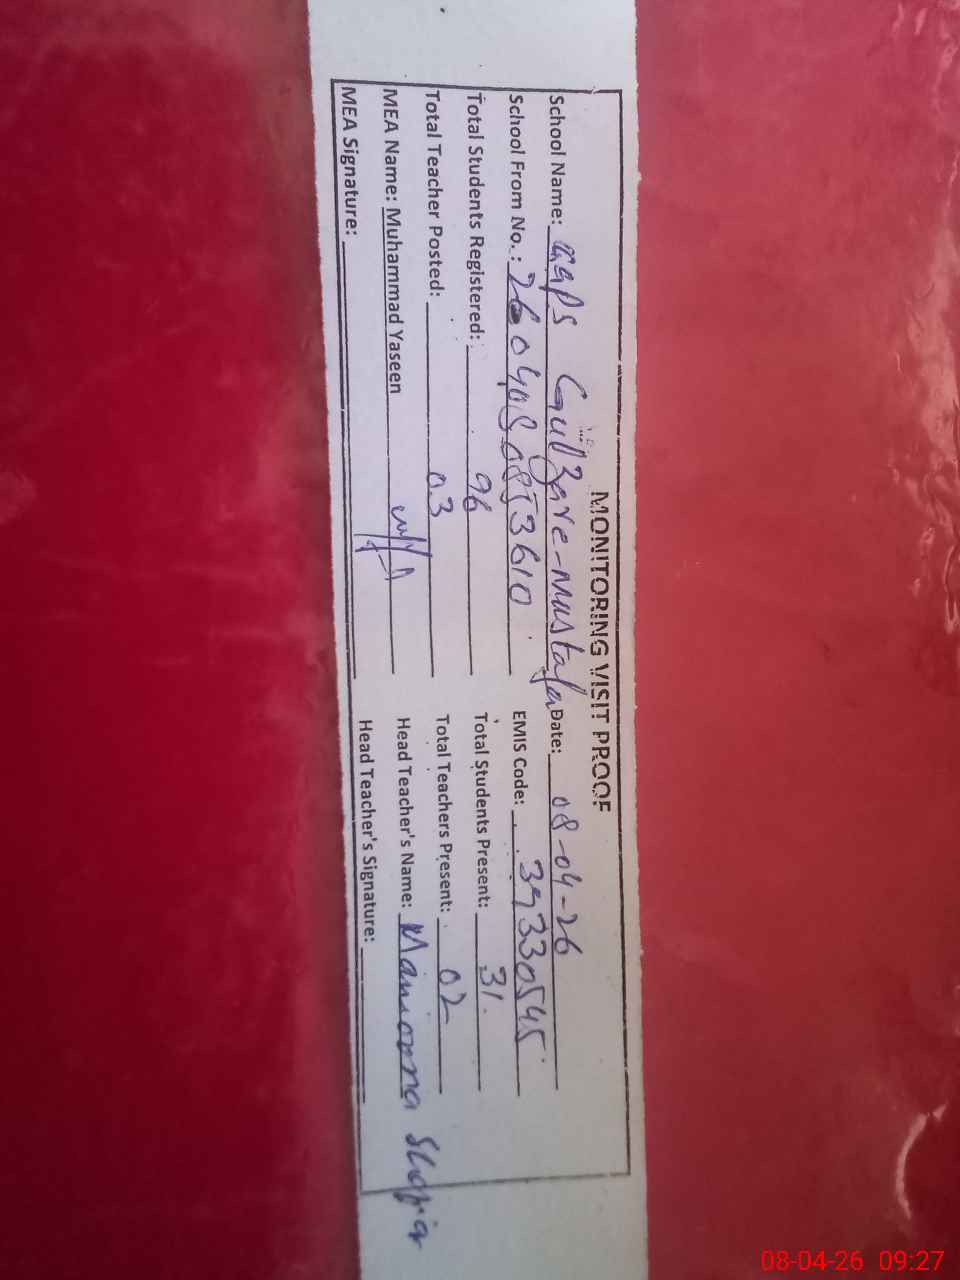 MONITORING VISIT PROOF
School Name: GGPS Gulzare-Mustafa Date: 08-04-26
School From No.: 2604050853610 EMIS Code: 37330545
Total Students Registered: 96 Total Students Present: 31
Total Teacher Posted: 03 Total Teachers Present: 02
MEA Name: Muhammad Yaseen Head Teacher's Name:
MEA Signature: Head Teacher's Signature:
08-04-26 09:27